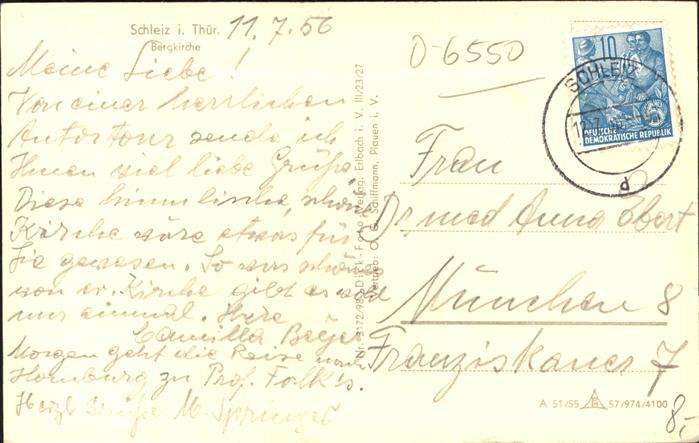 Schleiz i. Thür. 11.7.56
Bergkirche
Meine Liebe!
Von einer herrlichen
Autotour sende ich
Ihnen viel liebe Grüße
Diese himmlische, schöne
Kirche wäre etwas für
Sie gewesen. So was schönes
von er. Kirche gibt es wohl
nur einmal. Ihre
Camilla Beyer
Morgen geht die Reise nach
Homburg zu Prof. Falk's.
Herzl. Grüße M. Springer
III/23/27
Erlbach i. V.
Schiffmann, Plauen i. V.
D-6550
10
DEUTSCHE
DEMOKRATISCHE REPUBLIK
SCHLEIZ
d
Frau
Dr. med Anna Ebert
München 8
Franziskaner 7
A 51/55 57/974/4100
8,-